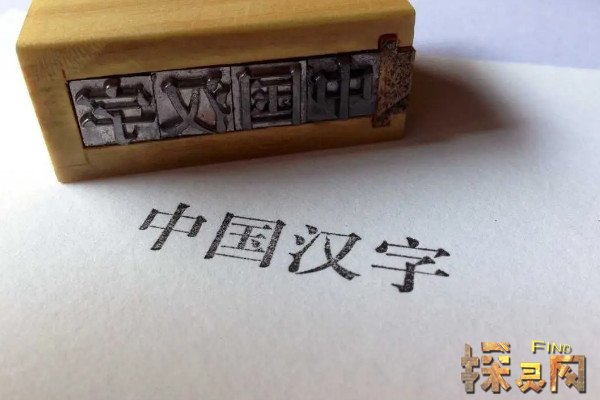 字汉国中
中国汉字
FIND
探灵网